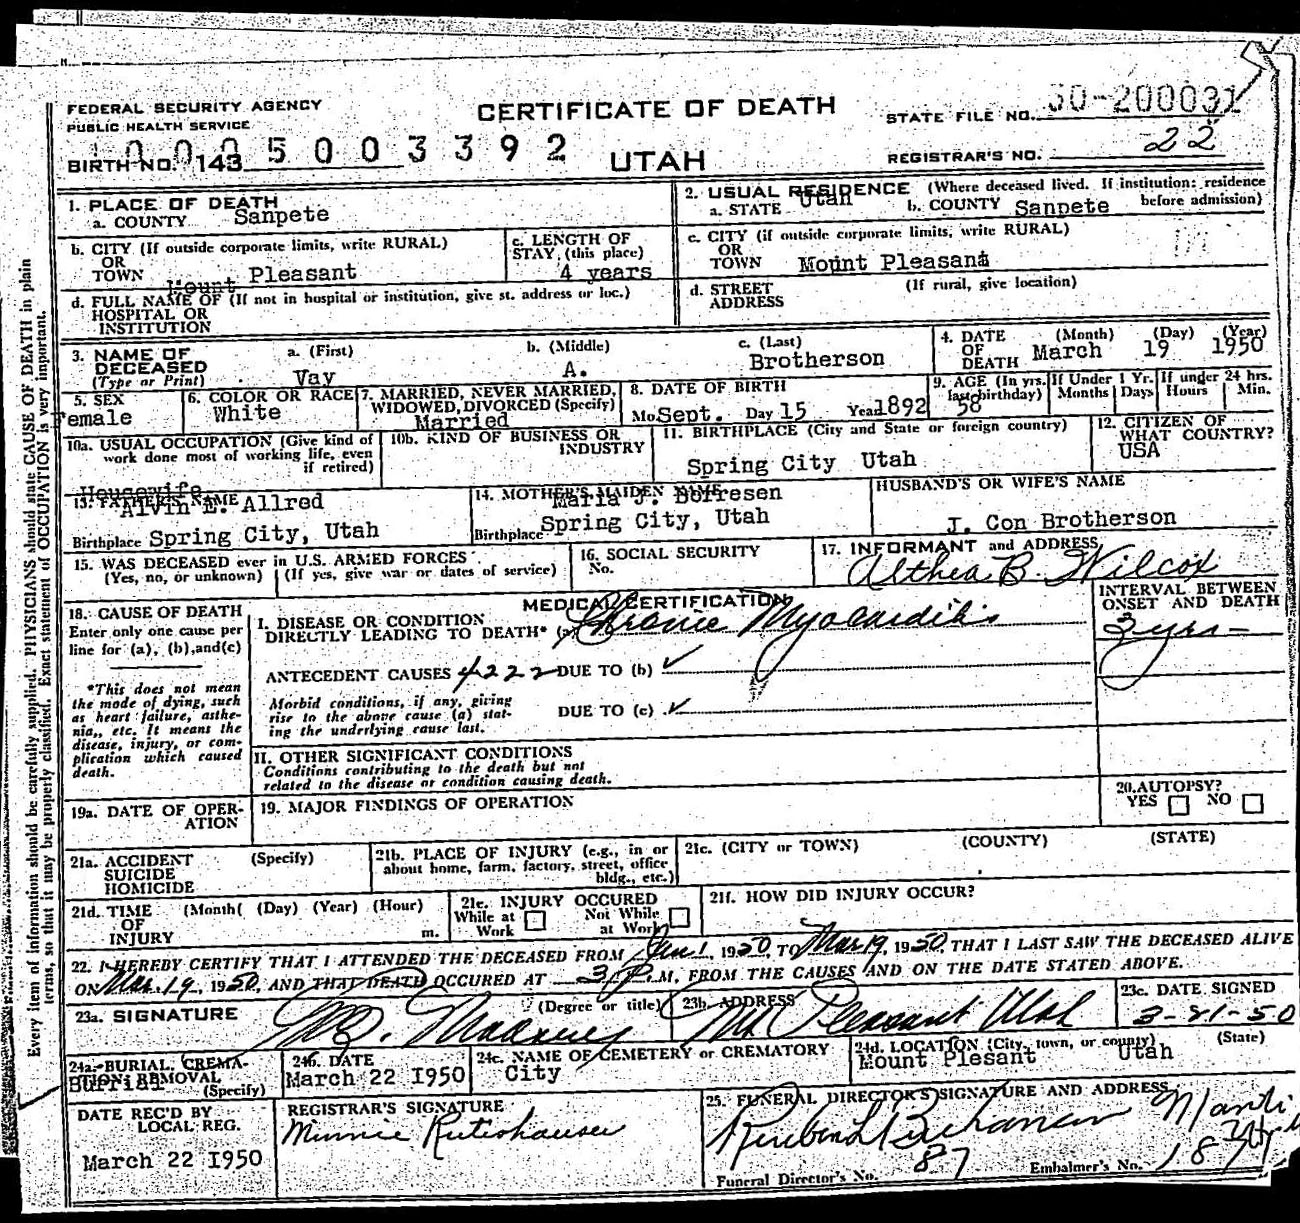 FEDERAL SECURITY AGENCY
PUBLIC HEALTH SERVICE
CERTIFICATE OF DEATH
UTAH
STATE FILE NO. 50-200031
REGISTRAR'S NO. 22
BIRTH NO. 143 5003392
Every item of information should be carefully supplied. PHYSICIANS should state CAUSE OF DEATH in plain
terms, so that it may be properly classified. Exact statement of OCCUPATION is very important.
1. PLACE OF DEATH
a. COUNTY Sanpete
2. USUAL RESIDENCE (Where deceased lived. If institution: residence before admission)
a. STATE Utah b. COUNTY Sanpete
b. CITY (If outside corporate limits, write RURAL)
OR
TOWN Mount Pleasant
c. LENGTH OF
STAY, (this place)
4 years
c. CITY (if outside corporate limits, write RURAL)
OR
TOWN Mount Pleasant
d. FULL NAME OF (If not in hospital or institution, give st. address or loc.)
HOSPITAL OR
INSTITUTION
d. STREET
ADDRESS
(If rural, give location)
3. NAME OF
DECEASED
(Type or Print)
a. (First)
Vay
b. (Middle)
A.
c. (Last)
Brotherson
4. DATE
OF
DEATH
(Month) (Day) (Year)
March 19 1950
5. SEX
Female
6. COLOR OR RACE
White
7. MARRIED, NEVER MARRIED,
WIDOWED, DIVORCED (Specify)
Married
8. DATE OF BIRTH
Mo. Sept. Day 15 Year 1892
9. AGE (In yrs.
last birthday)
58
If Under 1 Yr.
Months Days
If under 24 hrs.
Hours Min.
10a. USUAL OCCUPATION (Give kind of
work done most of working life, even
if retired)
Housewife
10b. KIND OF BUSINESS OR
INDUSTRY
11. BIRTHPLACE (City and State or foreign country)
Spring City Utah
12. CITIZEN OF
WHAT COUNTRY?
USA
13. FATHER'S NAME
Alvin E. Allred
Birthplace Spring City, Utah
14. MOTHER'S MAIDEN NAME
Maria J. Borresen
Birthplace Spring City, Utah
HUSBAND'S OR WIFE'S NAME
J. Con Brotherson
15. WAS DECEASED ever in U.S. ARMED FORCES
(Yes, no, or unknown) (If yes, give war or dates of service)
16. SOCIAL SECURITY
No.
17. INFORMANT and ADDRESS
Althea B. Wilcox
18. CAUSE OF DEATH
Enter only one cause per
line for (a), (b), and (c)
*This does not mean
the mode of dying, such
as heart failure, asthe-
nia,, etc. It means the
disease, injury, or com-
plication which caused
death.
MEDICAL CERTIFICATION
I. DISEASE OR CONDITION
DIRECTLY LEADING TO DEATH* (a) Chronic Myocarditis
ANTECEDENT CAUSES 4222 DUE TO (b) ✓
Morbid conditions, if any, giving
rise to the above cause (a) stat-
ing the underlying cause last.
DUE TO (c) ✓
INTERVAL BETWEEN
ONSET AND DEATH
3 yrs-
II. OTHER SIGNIFICANT CONDITIONS
Conditions contributing to the death but not
related to the disease or condition causing death.
19a. DATE OF OPER-
ATION
19. MAJOR FINDINGS OF OPERATION
20. AUTOPSY?
YES NO
21a. ACCIDENT
SUICIDE
HOMICIDE
(Specify)
21b. PLACE OF INJURY (e.g., in or
about home, farm, factory, street, office
bldg., etc.)
21c. (CITY or TOWN) (COUNTY) (STATE)
21d. TIME
OF
INJURY
(Month( (Day) (Year) (Hour)
m.
21e. INJURY OCCURED
While at
Work
Not While
at Work
21f. HOW DID INJURY OCCUR?
22. I HEREBY CERTIFY THAT I ATTENDED THE DECEASED FROM Jan 1, 1950, TO Mar 19, 1950, THAT I LAST SAW THE DECEASED ALIVE
ON Mar. 19, 1950, AND THAT DEATH OCCURED AT 3 P.M, FROM THE CAUSES AND ON THE DATE STATED ABOVE.
23a. SIGNATURE
(Degree or title)
23b. ADDRESS
Mt Pleasant Utah
23c. DATE SIGNED
3-21-50
24a. BURIAL, CREMA-
TION, REMOVAL
(Specify)
Burial
24b. DATE
March 22 1950
24c. NAME OF CEMETERY or CREMATORY
City
24d. LOCATION (City, town, or county) (State)
Mount Plesant Utah
DATE REC'D BY
LOCAL REG.
March 22 1950
REGISTRAR'S SIGNATURE
Minnie Rutishauser
25. FUNERAL DIRECTOR'S SIGNATURE AND ADDRESS
Buchanan Manti
Funeral Director's No. 87
Embalmer's No. 187